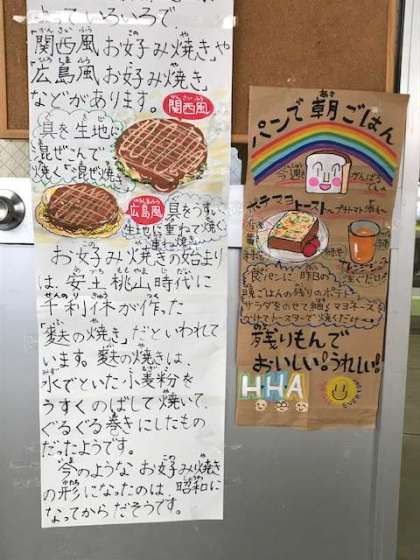 いろいろで
「関西風お好み焼き」や
「広島風お好み焼き」
などがあります。
関西風
具を生地に
混ぜこんで
焼く
混ぜ焼き
広島風
具をうすい
生地に重ねて焼く
お好み焼の始まり
は、安土桃山時代に
千利休が作った
「麩の焼き」だといわれて
います。麩の焼きは、
水でといた小麦粉を
うすくのばして焼いて、
ぐるぐる巻きにしたもの
だったようです。
今のような お好み焼き
の形になったのは、昭和に
なってからだそうです。
パンで朝ごはん
今週も
がんばろう
ポテマヨトースト
食パンに 昨日の
晩ごはんの残りのポテト
サラダをのせて
マヨネーズを
トースターで焼くだけ
残りもんで
おいしい!うれしい!
HHA